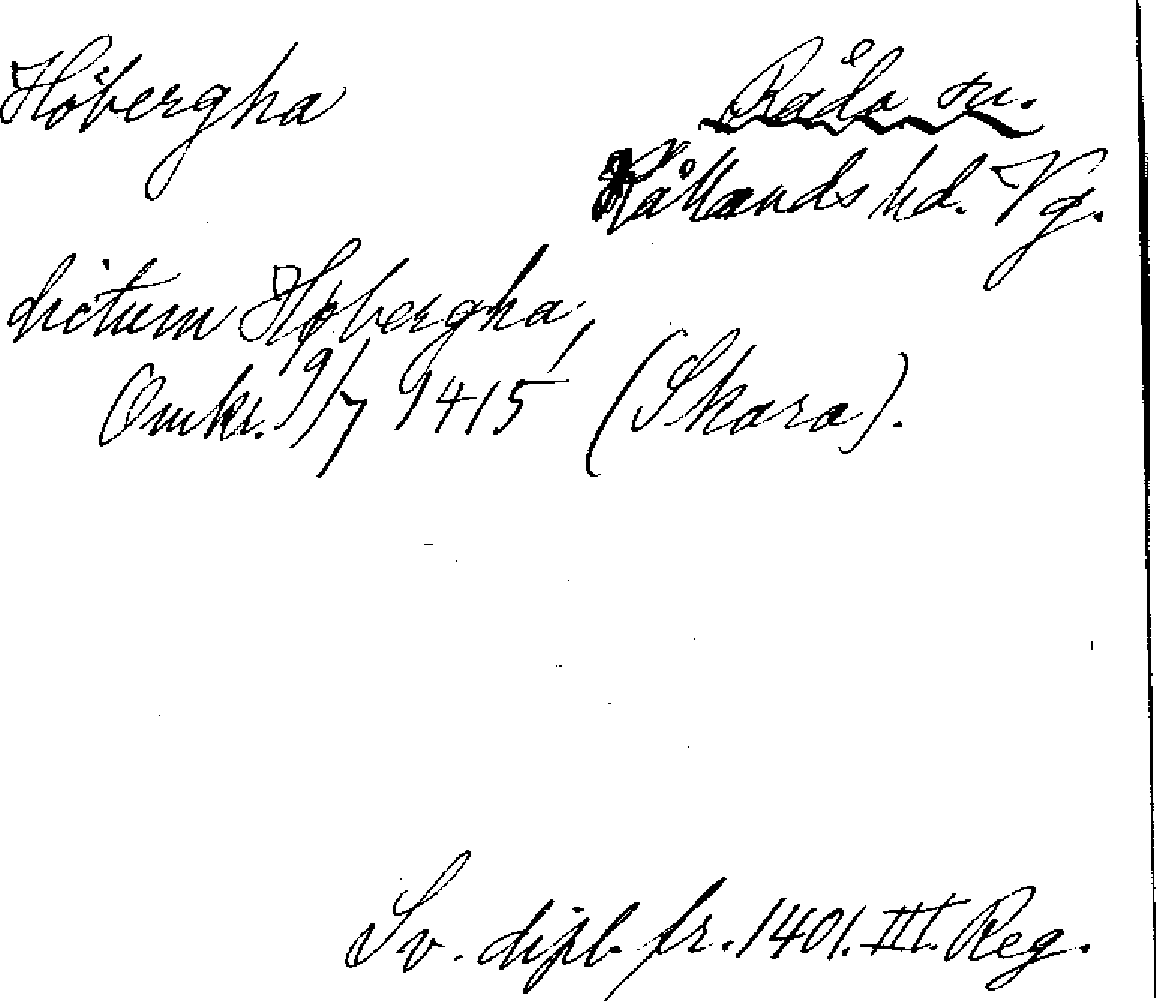 Höbergha
Råda sn.
Kållands hd. Vg.
dictum Høbergha,
Omkr. 9/7 1415 (Skara).
Sv. dipl. fr. 1401. III. Reg.